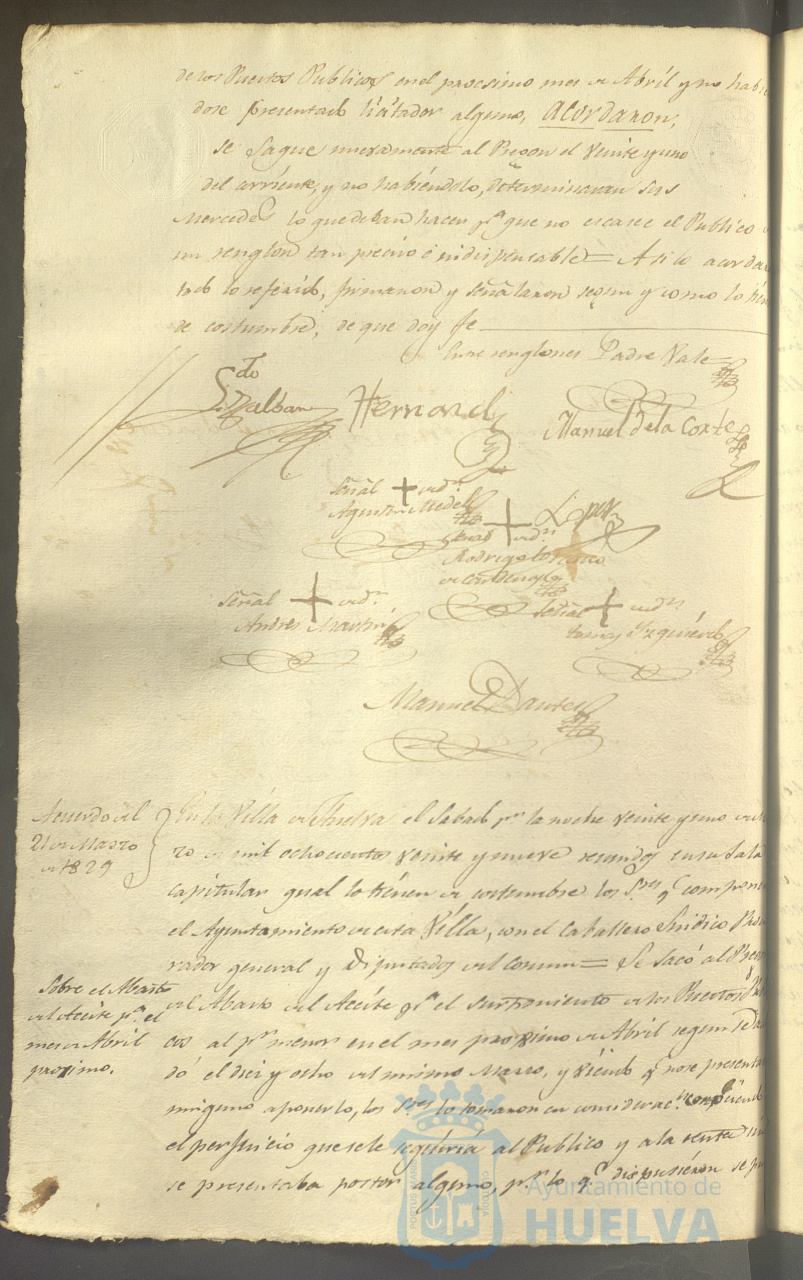 de los Puertos Publicos en el procsimo mes de Abril y no habi
dose presentado licitador alguno, acordaron,
se saque nuevamente al Pregon el veinte y uno
del corriente, y no habiéndolo, determinaran sus
Mercedes lo que deban hacer pa. que no escasee el Publico
un renglon tan preciso é indispensable = Asi lo acorda
todo lo referido, firmaron y señalaron segun y como lo tien
de costumbre, de que doy fe
Entre renglones Padre Vale
Hernand
Manuel de la Corte
señal + de
Agustin Medel
Lopez
señal + de
Rodrigo
de Cardenas
señal + de
Andres Martin
señal + de
Tomas Yzquierdo
Manuel Dante
Acuerdo del
21 de Marzo
de 1829
En la Villa de Huelva el Sabado pr. la noche veinte y uno de
zo de mil ochocientos veinte y nueve reunidos en su Sala
capitular qual lo tienen de costumbre los Sres. q. componen
el Ayuntamiento de esta Villa, con el Caballero Sindico Procu
rador general y Diputados del Comun = Se sacó al Pregon
Sobre el Abasto
del Aceite pa. el
mes de Abril
proximo.
el Abasto del Aceite pa. el surtimiento de los Puertos Pu
cos al pr. menor en el mes proximo de Abril segun se
dó el diez y ocho del mismo Marzo, y viendo q. no se presenta
ninguno aponerlo, los Sres. lo tomaron en considerac.n
el perjuicio que se le seguiria al Publico y a la renta
se presentaba postor alguno, pr. lo q. dispusieron se
PORTUS MARIS
CUSTODIA
Ayuntamiento de
HUELVA